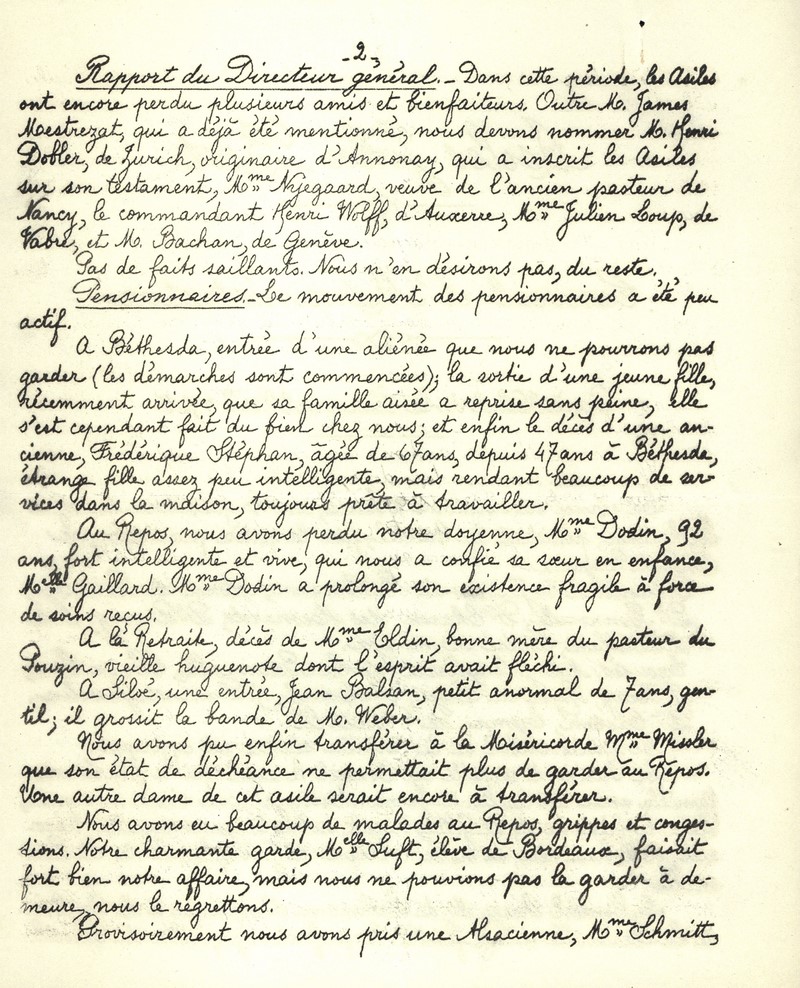 -2-
Rapport du Directeur général. - Dans cette période, les Asiles
ont encore perdu plusieurs amis et bienfaiteurs. Outre M. James
Mestrezat, qui a déjà été mentionné, nous devons nommer M. Henri
Dobler, de Zurich, originaire d'Annonay, qui a inscrit les Asiles
sur son testament, Mme Nyegaard, veuve de l'ancien pasteur de
Nancy, le commandant Henri Wolff, d'Auxerre, Mme Julien Loup, de
Vabre, et M. Bachan, de Genève.
Pas de faits saillants. Nous n'en désirons pas, du reste.
Pensionnaires - Le mouvement des pensionnaires a été peu
actif.
A Béthesda, entrée d'une aliénée que nous ne pourrons pas
garder (les démarches sont commencées); la sortie d'une jeune fille,
récemment arrivée, que sa famille aisée a reprise sans peine, elle
s'est cependant fait du bien chez nous; et enfin le décès d'une an-
cienne, Frédérique Stéphan, âgée de 67 ans, depuis 47 ans à Béthesda,
étrange fille assez peu intelligente, mais rendant beaucoup de ser-
vices dans la maison, toujours prête à travailler.
Au Repos, nous avons perdu notre doyenne, Mme Dodin, 92
ans, fort intelligente et vive, qui nous a confié sa sœur en enfance,
Melle Gaillard. Mme Dodin a prolongé son existence fragile à force
de soins reçus.
A la Retraite, décès de Mme Eldin, bonne mère du pasteur du
Pouzin, vieille huguenote dont l'esprit avait fléchi.
A Siloé, une entrée, Jean Balsan, petit anormal de 7 ans, gen-
til; il grossit la bande de M. Weber.
Nous avons pu enfin transférer à la Miséricorde Mme Missler
que son état de déchéance ne permettait plus de garder au Repos.
Une autre dame de cet asile serait encore à transférer.
Nous avons eu beaucoup de malades au Repos, grippes et conges-
tions. Notre charmante garde, Melle Suft, élève de Bordeaux, faisait
fort bien notre affaire, mais nous ne pouvions pas la garder à de-
meure, nous le regrettons.
Provisoirement nous avons pris une Alsacienne, Mme Schmitt,